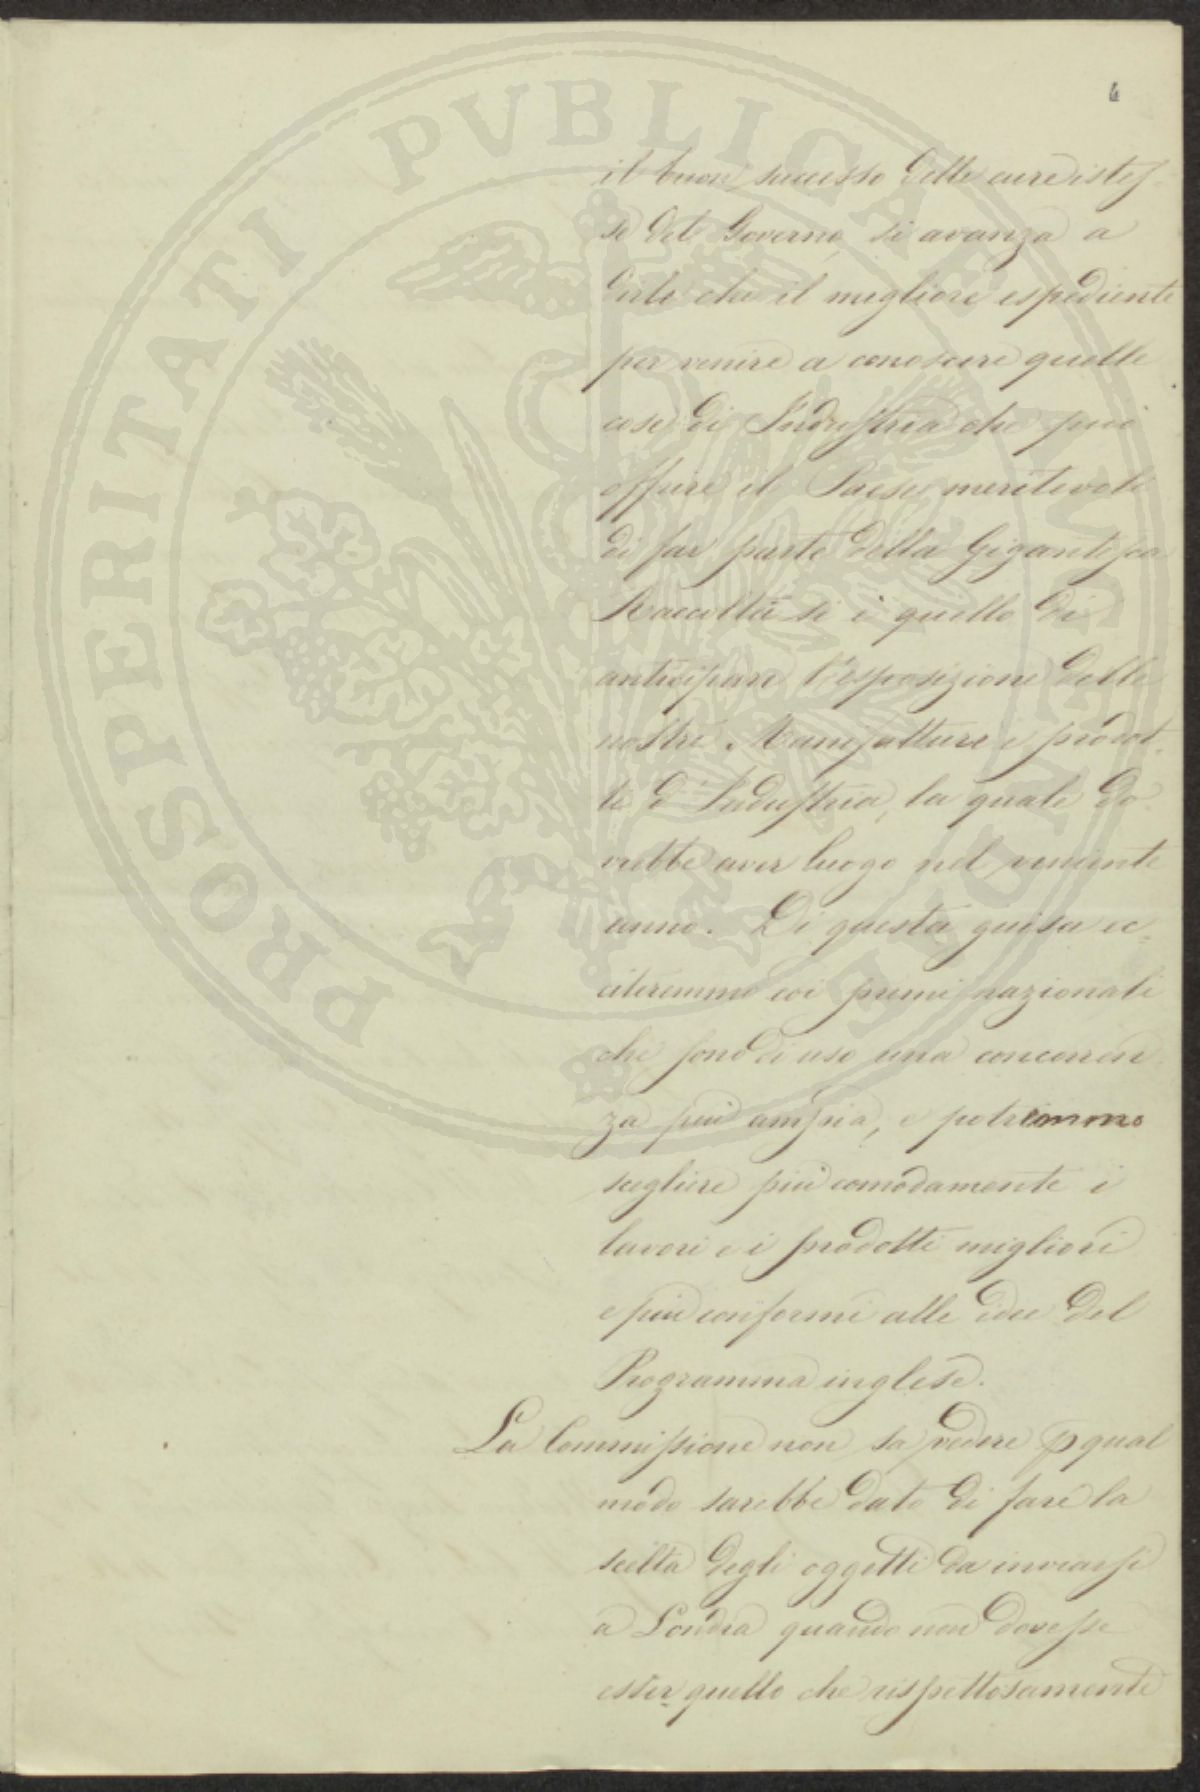 4
il buon successo delle cure istes-
se del Governo, si avanza a
dirle che il migliore espediente
per venire a conoscere quelle
cose di Industria che può
offrire il Paese meritevoli
di far parte della Gigantesca
Raccolta si è quello di
anticipare l'esposizione delle
nostre Manifatture e prodot-
ti d'Industria, la quale do-
vrebbe aver luogo nel veniente
anno. Di questa guisa ec-
citeremmo coi premi nazionali
che sono di uso una concorren
za più ampia, e potremmo
scegliere più comodamente i
lavori e i prodotti migliori
e più conformi alle idee del
Programma inglese.
La Commissione non sa vedere p qual
modo sarebbe dato di fare la
scelta degli oggetti da inviarsi
a Londra quando non dovesse
esser quello che rispettosamente
PROSPERITATI PVBLICAE AVGENDAE